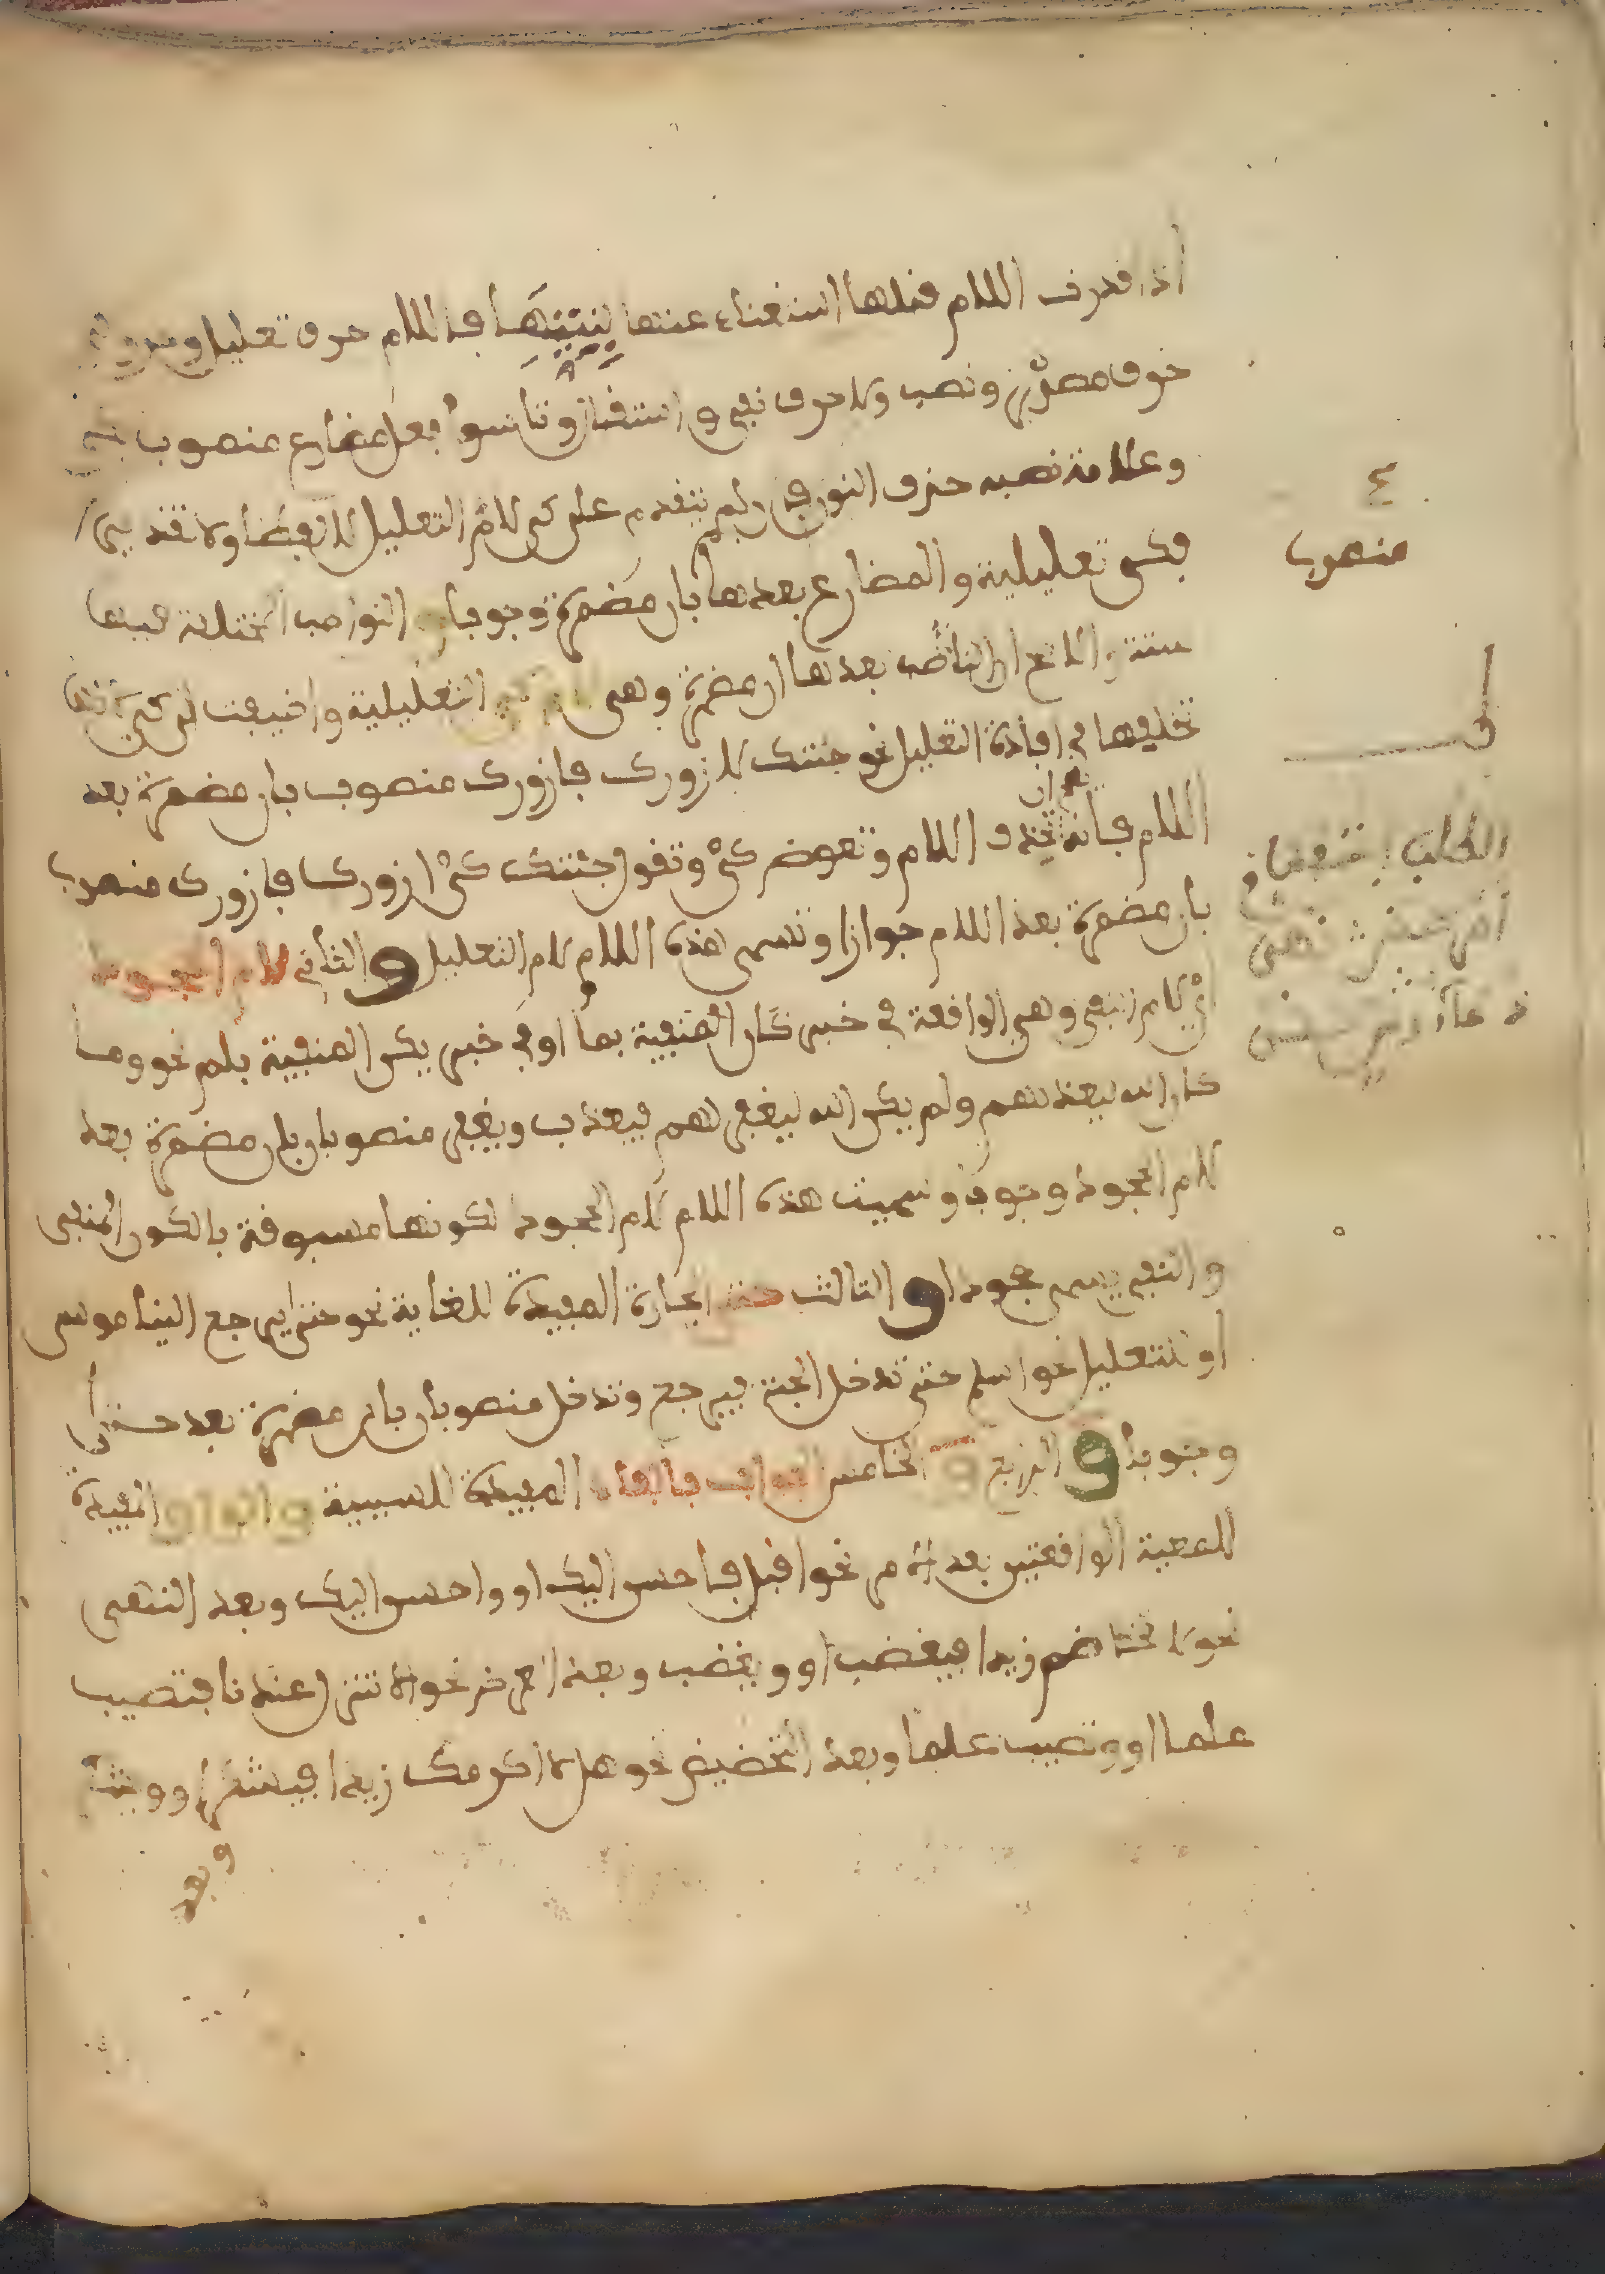 اذا قدرت اللام قبلها استغناء عنها بنيتها فاللام حرف تعليل وجر وكي
حرف مصدري ونصب ولا حرف نفي واستقبال وتاسوا فعل مضارع منصوب بكي
وعلامة نصبه حذف النون فان لم يتقدم على كي لام التعليل لا لفظا ولا تقديرا
فكي تعليلية والمضارع بعدها بان مضمرة وجوبا والنواصب المختلف فيها
ستة الاصح ان الناصب بعدها ان مضمرة وهي لام كي التعليلية واضيفت الى كي لانها
تخلفها في افادة التعليل نحو جئتك لازورك فازورك منصوب بان مضمرة بعد
اللام فانه يصح ان تحذف اللام وتعوض كي وتقول جئتك كي ازورك فازورك منصوب
بان مضمرة بعد اللام جوازا وتسمى هذه اللام لام التعليل والثاني لام الجحود
اي لام النفي وهي الواقعة في خبر كان المنفية بما او في خبر يكن المنفية بلم نحو وما
كان الله ليعذبهم ولم يكن الله ليغفر لهم فيعذب ويغفر منصوبان بان مضمرة بعد
لام الجحود وجوبا وسميت هذه اللام لام الجحود لكونها مسبوقة بالكون المنفي
والنفي يسمى جحودا والثالث حتى الجارة المفيدة للغاية نحو حتى يرجع الينا موسى
او للتعليل نحو اسلم حتى تدخل الجنة فيرجع وتدخل منصوبان بان مضمرة بعد حتى
وجوبا والرابع والخامس الجواب بالفاء المفيدة للسببية والواو المفيدة
للمعية الواقعتين بعد الامر نحو اقبل فاحسن اليك او واحسن اليك وبعد النهي
نحو لا تخاصم زيدا فيغضب او ويغضب وبعد العرض نحو الا تنزل عندنا فتصيب
علما او وتصيب علما وبعد التحضيض نحو هلا اكرمت زيدا فيشكر او ويشكر
وبعد
٤
منصوب